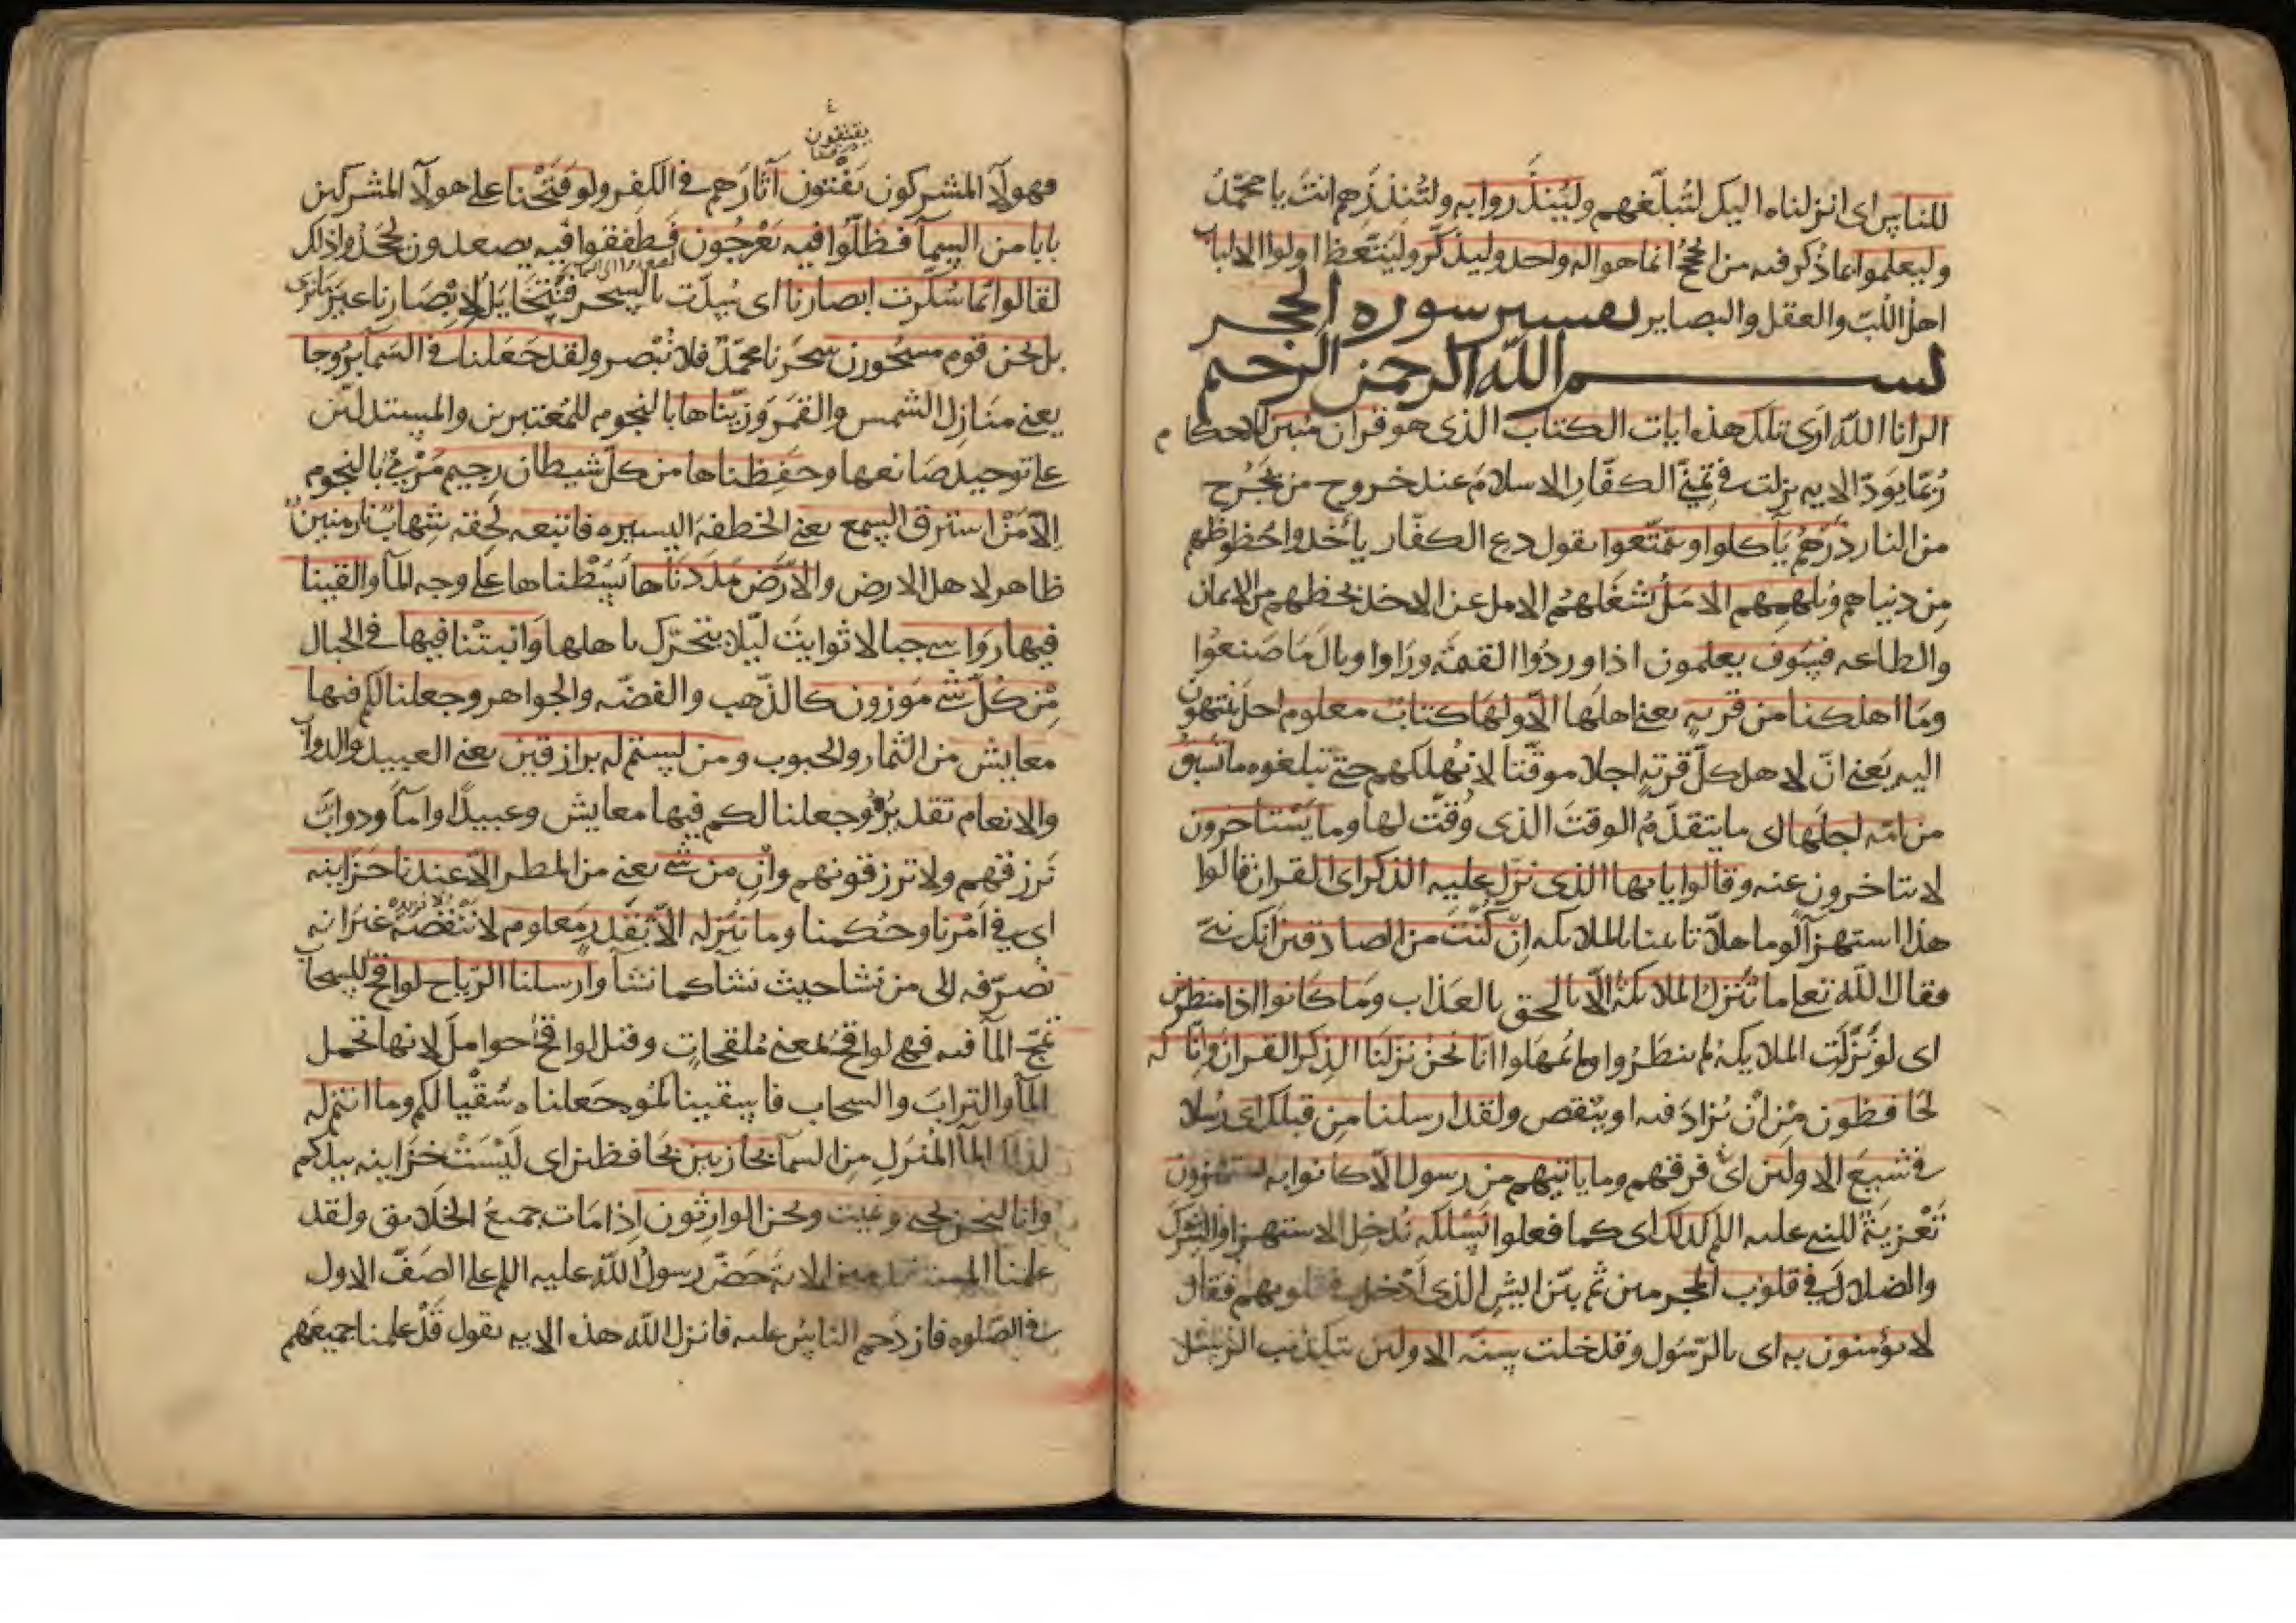 للناس اى انزلناه اليك لتبلّغهم ولينذروا به ولتنذرهم انت يا محمّد
وليعلموا بما ذكر فيه من الحجج انما هو اله واحد وليذكّر وليتّعظ اولوا الالباب
اهل اللب والعقل والبصاير تفسير سورة الحجر
بسم الله الرحمن الرحيم
الر انا الله ارى تلك هذه ايات الكتاب الذى هو قران مبين للاحكام
ربما يود الايه نزلت فى تمنى الكفار الاسلام عند خروج من يخرج
من النار ذرهم ياكلوا ويتمتعوا يقول دع الكفار ياخذوا حظوظهم
من دنياهم ويلههم الامل يشغلهم الامل عن الاخذ بحظهم من الايمان
والطاعه فسوف يعلمون اذا وردوا القيمة وراوا وبال ما صنعوا
وما اهلكنا من قريه يعنى اهلها الا ولها كتاب معلوم اجل ينتهون
اليه يعنى ان لاهل كل قرية اجلا موقتا لا نهلكهم حتى يبلغوه ما تسبق
من امه اجلها اى ما يتقدم الوقت الذى وقت لها وما يستاخرون
لا يتاخرون عنه وقالوا يايها الذى نزل عليه الذكر اى القران قالوا
هذا استهزآ لوما هلا تاتينا بالملايكه ان كنت من الصادقين انك نبى
فقال الله تعا ما تنزل الملايكة الا بالحق بالعذاب وما كانوا اذا منظرين
اى لو نزلت الملايكة لم ينظروا ولم يمهلوا انا نحن نزلنا الذكر القران وانا له
لحافظون من ان يزاد فيه او ينقص ولقد ارسلنا من قبلك اى رسلا
فى شيع الاولين اى فرقهم وما ياتيهم من رسول الا كانوا به يستهزون
تعزية للنبى عليه السلم كذلك اى كما فعلوا نسلكه ندخل الاستهزا والشرك
والضلال فى قلوب المجرمين ثم بين اليش الذى ادخل فى قلوبهم فقال
لا يؤمنون به اى بالرسول وقد خلت سنة الاولين بتكذيب الرسل
يقتفون
فهولآ المشركون يقتفون آثارهم فى الكفر ولو فتحنا على هولآ المشركين
بابا من السمآ فظلوا فيه يعرجون فطفقوا فيه يصعدون لجحدوا ذلك
لقالوا انما سكرت ابصارنا اى سدت بالسحر فتتخايل لابصارنا غير ما نرى
بل نحن قوم مسحورون سحرنا محمد فلا نبصر ولقد جعلنا فى السمآ بروجا
يعنى منازل الشمس والقمر وزيناها بالنجوم للمعتبرين والمستدلين
على توحيد صانعها وحفظناها من كل شيطان رجيم مرمى بالنجوم
الا من استرق السمع يعنى الخطفة اليسيره فاتبعه لحقه شهاب نار مبين
ظاهر لاهل الارض والارض مددناها بسطناها على وجه المآ والقينا
فيها رواسى جبالا ثوابت ليلا يتحرك باهلها وانبتنا فيها فى الجبال
من كل شى موزون كالذهب والفضه والجواهر وجعلنا لكم فيها
معايش من الثمار والحبوب ومن لستم له برازقين يعنى العبيد والدواب
والانعام تقديره وجعلنا لكم فيها معايش وعبيدا وامآ ودواب
نرزقهم ولا ترزقونهم وان من شى يعنى من المطر الا عندنا خزاينه
اى فى امرنا وحكمنا وما ننزله الا بقدر معلوم لا ننقصه ولا نزيده غير انه
نصرفه الى من نشا حيث نشا كما نشآ وارسلنا الرياح لواقح للسحاب
تمج المآ فيه فهى لواقح بمعنى ملقحات وقيل لواقح حوامل لانها تحمل
المآ والتراب والسحاب فاسقيناكموه جعلناه سقيا لكم وما انتم له
لذلك المآ المنزل من السمآ بخازنين بحافظين اى ليست خزاينه بيدكم
وانا لنحن نحيى ونميت ونحن الوارثون اذا مات جميع الخلايق ولقد
علمنا المستقدمين الاية حض رسول الله عليه السلم على الصف الاول
فى الصلوه فازدحم الناس عليه فانزل الله هذه الايه يقول قد علمنا جميعهم